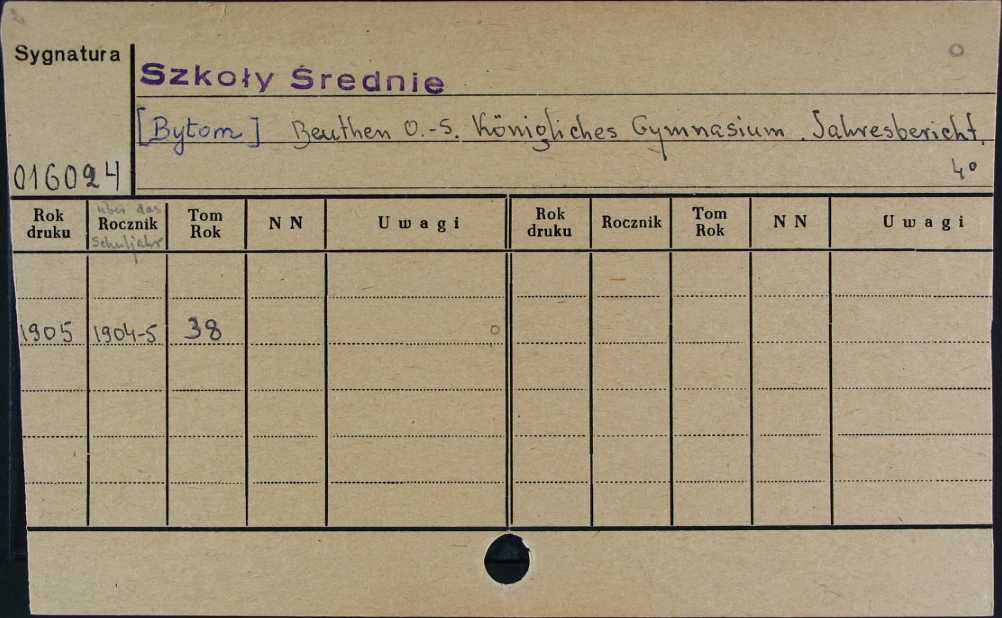 Sygnatura
Szkoły Średnie
[Bytom] Beuthen O.-S. Königliches Gymnasium. Jahresbericht.
016024
4°
Rok druku über das Rocznik Schuljahr Tom Rok N N Uwagi Rok druku Rocznik Tom Rok N N Uwagi
1905 1904-5 38 o